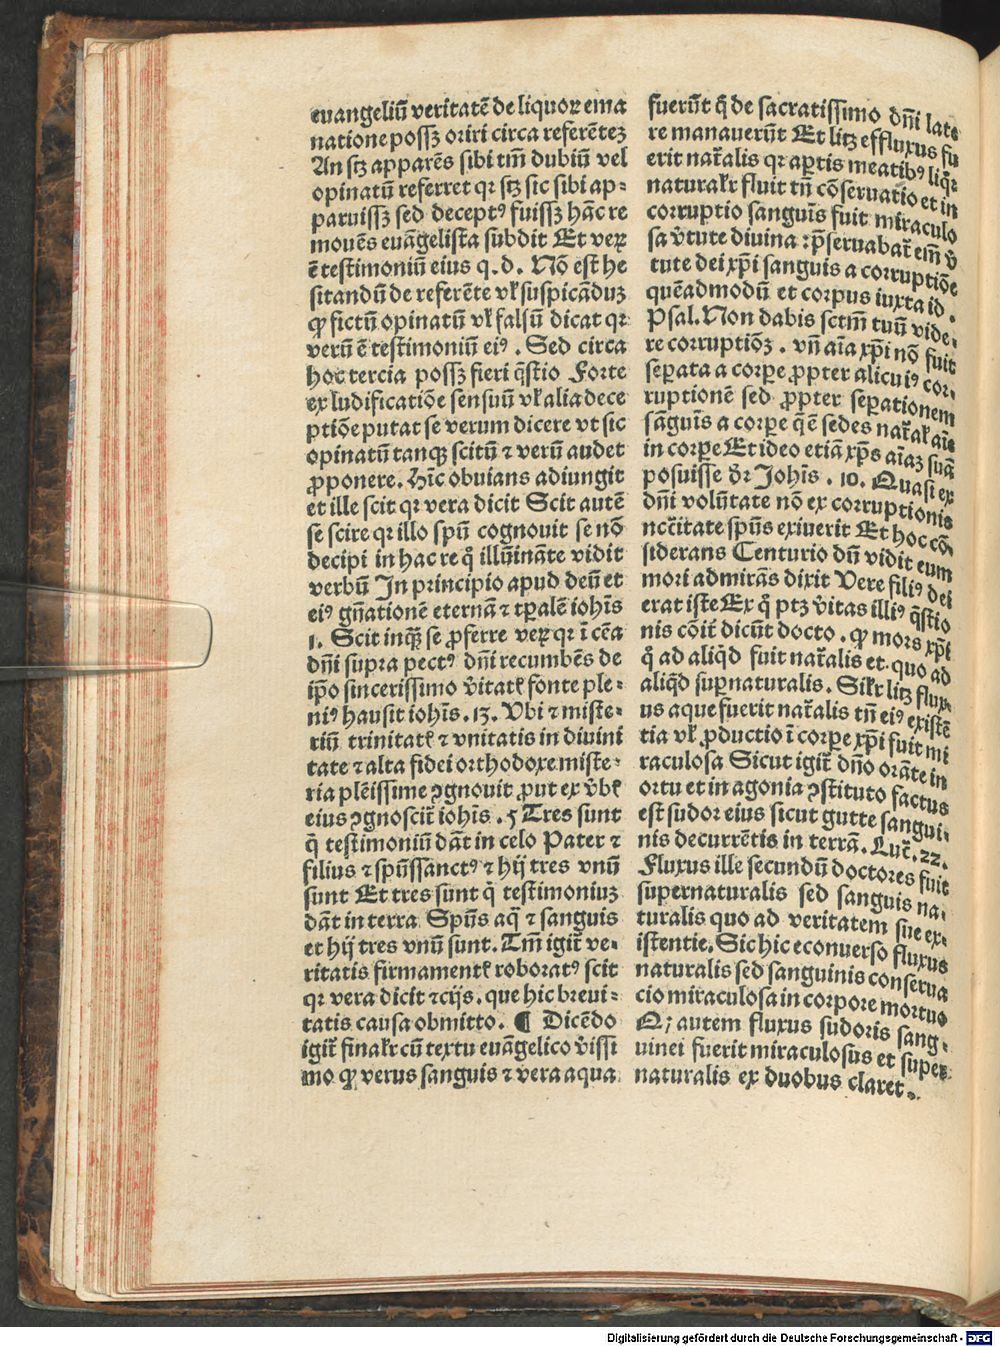 euangeliū veritatē de liquoꝝ ema
natione possꝫ oriri circa referētez
An sꝫ apparēs sibi tm̄ dubiū vel
opinatū referret qꝛ sꝫ sic sibi ap-
paruissꝫ sed deceptꝰ fuissꝫ hāc re
mouēs euāgelista subdit Et veꝝ
ē testimoniū eius q.d. Nō est he
sitandū de referēte vel suspicāduꝫ
ꝙ fictū opinatū vel falsū dicat qꝛ
verū ē testimoniū eiꝰ. Sed circa
hoc tercia possꝫ fieri q̄stio Forte
ex ludificatiōe sensuū vel alia dece
ptiōe putat se verum dicere vt sic
opinatū tanqꝫ scitū ⁊ verū audet
ꝓponere. Hīc obuians adiungit
et ille scit qꝛ vera dicit Scit autē
se scire qꝛ illo spū cognouit se nō
decipi in hac re q̊ illūinante vidit
verbū In principio apud deū et
eiꝰ gn̄ationē eternā ⁊ tꝑalē iohīs
1. Scit inqꝫ se ꝓferre veꝝ qꝛ ī cēa
dn̄i supra pectꝰ dn̄i recumbēs de
ip̄o sincerissimo v̄itatꝭ fonte ple-
niꝰ hausit iohīs. 13. Vbi ⁊ miste-
riū trinitatꝭ ⁊ vnitatis in diuini
tate ⁊ alta fidei orthodoxe miste-
ria plēissime ꝯgnouit ꝓut ex v̄bꝭ
eius ꝯgnoscit̄ iohīs. 5 Tres sunt
q̄ testimoniū dāt in celo Pater ⁊
filius ⁊ spūssanctꝰ ⁊ hij tres vnū
sunt Et tres sunt q̄ testimoniuꝫ
dāt in terra Spūs aq̄ ⁊ sanguis
et hij tres vnū sunt. Tm̄ igit̄ ve-
ritatis firmamentꝭ roboratꝰ scit
qꝛ vera dicit ⁊cijs. que hic breui-
tatis causa obmitto. ¶ Dicēdo
igit̄ finalr cū textu euāgelico v̄issi
mo ꝙ verus sanguis ⁊ vera aqua
fuerūt q̄ de sacratissimo dn̄i late
re manauerūt Et licꝫ effluxus fu
erit nat̄alis qꝛ aꝑtis meatibꝰ liq̄ꝛ
naturalr fluit tn̄ cōseruatio et in
corruptio sanguīs fuit miraculo
sa v̄tute diuina : p̄seruabat̄ em̄ v̄
tute dei xp̄i sanguis a corruptiōe
quēadmodū et corpus iuxta id.
Psal. Non dabis sctm̄ tuū vide-
re corruptiōꝫ. vn̄ aīa xp̄i nō fuit
seꝑata a corꝑe ꝓpter alicuiꝰ cor-
ruptionē sed ꝓpter seꝑationem
sāguīs a corꝑe q̄ ē sedes nat̄alꝭ aīe
in corꝑe Et ideo etiā xp̄s aīaꝫ suā
posuisse dꝛ Johīs. 10. Quasi ex
dn̄i volūtate nō ex corruptionis
nccītate spūs exiuerit Et hoc cō-
siderans Centurio dū vidit eum
mori admirās dixit Vere filiꝰ dei
erat iste Ex q̊ ptꝫ v̄itas illiꝰ q̄stio
nis cōit̄ dicūt docto. ꝙ mors xp̄i
q̊ ad aliq̄d fuit nat̄alis et. quo ad
aliq̄d suꝑnaturalis. Silr licꝫ flux-
us aque fuerit nat̄alis tn̄ eiꝰ existē
tia vel ꝓductio ī corꝑe xp̄i fuit mi
raculosa Sicut igit̄ dn̄o orāte in
ortu et in agonia ꝯstituto factus
est sudor eius sicut gutte sangui-
nis decurrētis in terrā. Luc̄. 22.
Fluxus ille secundū doctores fuit
supernaturalis sed sanguis na-
turalis quo ad veritatem sue ex-
istentie. Sic hic econuerso fluxus
naturalis sed sanguinis conserua
cio miraculosa in corpore mortuo
Qꝫ autem fluxus sudoris sang-
uinei fuerit miraculosus et super
naturalis ex duobus claret.
Digitalisierung gefördert durch die Deutsche Forschungsgemeinschaft - DFG